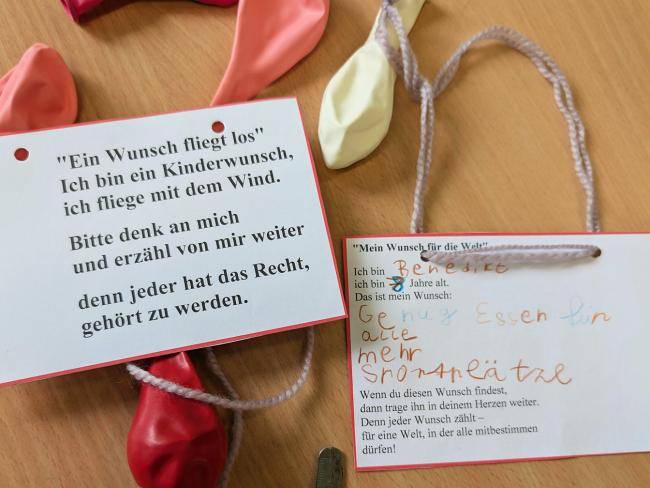 "Ein Wunsch fliegt los"
Ich bin ein Kinderwunsch,
ich fliege mit dem Wind.
Bitte denk an mich
und erzähl von mir weiter
denn jeder hat das Recht,
gehört zu werden.
"Mein Wunsch für die Welt"
Ich bin Benedikt
ich bin 8 Jahre alt.
Das ist mein Wunsch:
Genug Essen für
alle
mehr
Sportplätze
Wenn du diesen Wunsch findest,
dann trage ihn in deinem Herzen weiter.
Denn jeder Wunsch zählt –
für eine Welt, in der alle mitbestimmen
dürfen!